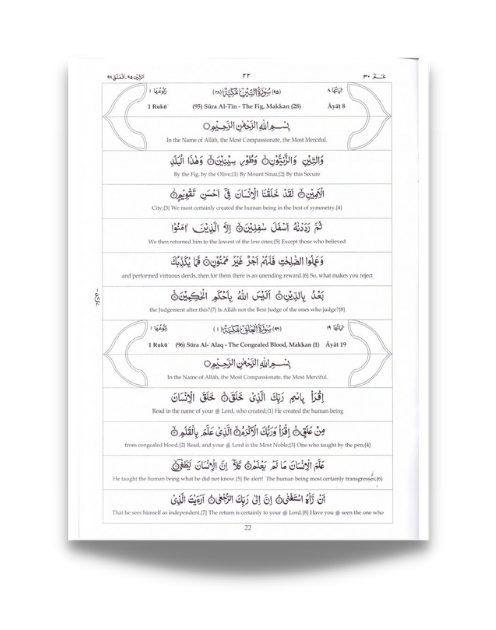 التين ٩٥ - العلق ٩٦ ٢٢ عم ٣٠
(٩٥) سُوْرَةُ التِّيْنِ مَكِّيَّةٌ (٢٨)
1 Rukū' (95) Sūra Al-Tin - The Fig, Makkan (28) Āyāt 8
بِسْمِ اللهِ الرَّحْمٰنِ الرَّحِيْمِ
In the Name of Allāh, the Most Compassionate, the Most Merciful.
وَالتِّيْنِ وَالزَّيْتُوْنِ وَطُوْرِ سِيْنِيْنَ وَهٰذَا الْبَلَدِ
By the Fig, by the Olive;(1) By Mount Sinai;(2) By this Secure
الْاَمِيْنِ لَقَدْ خَلَقْنَا الْاِنْسَانَ فِيْٓ اَحْسَنِ تَقْوِيْمٍ
City;(3) We most certainly created the human being in the best of symmetry.(4)
ثُمَّ رَدَدْنٰهُ اَسْفَلَ سٰفِلِيْنَ اِلَّا الَّذِيْنَ اٰمَنُوْا
We then returned him to the lowest of the low ones;(5) Except those who believed
وَعَمِلُوا الصّٰلِحٰتِ فَلَهُمْ اَجْرٌ غَيْرُ مَمْنُوْنٍ فَمَا يُكَذِّبُكَ
and performed virtuous deeds, then for them there is an unending reward.(6) So, what makes you reject
بَعْدُ بِالدِّيْنِ اَلَيْسَ اللهُ بِاَحْكَمِ الْحٰكِمِيْنَ
the Judgement after this?(7) Is Allāh not the Best Judge of the ones who judge?(8)
(٩٦) سُوْرَةُ الْعَلَقِ مَكِّيَّةٌ (١)
1 Rukū' (96) Sūra Al- Alaq - The Congealed Blood, Makkan (1) Āyāt 19
بِسْمِ اللهِ الرَّحْمٰنِ الرَّحِيْمِ
In the Name of Allāh, the Most Compassionate, the Most Merciful.
اِقْرَاْ بِاسْمِ رَبِّكَ الَّذِيْ خَلَقَ خَلَقَ الْاِنْسَانَ
Read in the name of your Lord, who created;(1) He created the human being
مِنْ عَلَقٍ اِقْرَاْ وَرَبُّكَ الْاَكْرَمُ الَّذِيْ عَلَّمَ بِالْقَلَمِ
from congealed blood.(2) Read, and your Lord is the Most Noble;(3) One who taught by the pen;(4)
عَلَّمَ الْاِنْسَانَ مَا لَمْ يَعْلَمْ كَلَّآ اِنَّ الْاِنْسَانَ لَيَطْغٰى
He taught the human being what he did not know.(5) Be alert! The human being most certainly transgresses;(6)
اَنْ رَّاٰهُ اسْتَغْنٰى اِنَّ اِلٰى رَبِّكَ الرُّجْعٰى اَرَءَيْتَ الَّذِيْ
That he sees himself as independent.(7) The return is certainly to your Lord.(8) Have you seen the one who
22